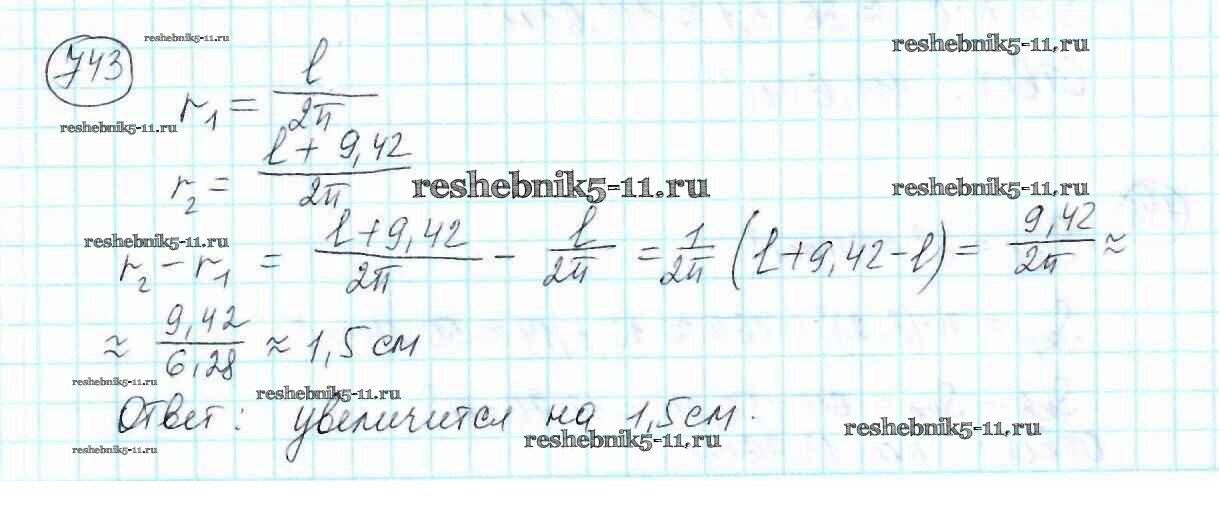 743
reshebnik5-11.ru
reshebnik5-11.ru
r₁ = l/2π
reshebnik5-11.ru
r₂ = (l + 9,42)/2π
reshebnik5-11.ru
reshebnik5-11.ru
reshebnik5-11.ru
r₂ − r₁ = (l+9,42)/2π − l/2π = 1/2π (l+9,42−l) = 9,42/2π ≈
≈ 9,42/6,28 ≈ 1,5 см
reshebnik5-11.ru
reshebnik5-11.ru
Ответ: увеличится на 1,5 см.
reshebnik5-11.ru
reshebnik5-11.ru
reshebnik5-11.ru